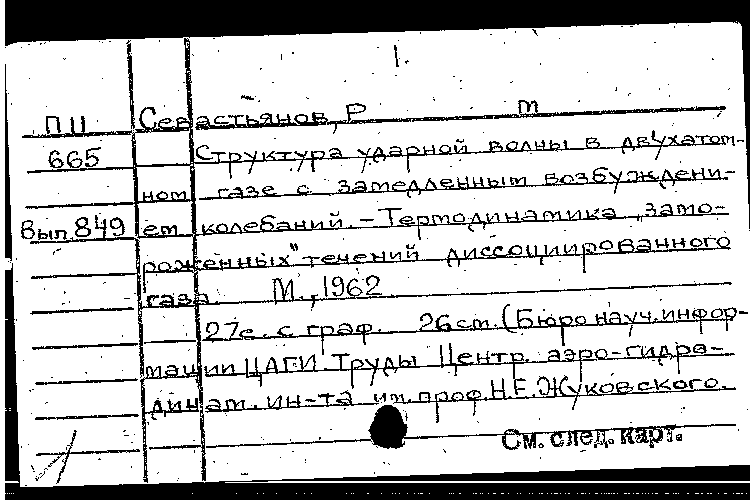 1.
П 11 Севастьянов, Р m
665 Структура ударной волны в двухатом-
ном газе с замедленным возбуждени-
Вып 849 ем колебаний. - Термодинамика „замо-
роженных" течений диссоциированного
газа. М., 1962
27с. с граф. 26см. (Бюро науч. инфор-
мации ЦАГИ. Труды Центр. аэро-гидра-
динам. ин-та им. проф. Н.Е. Жуковского.
См. след. карт.